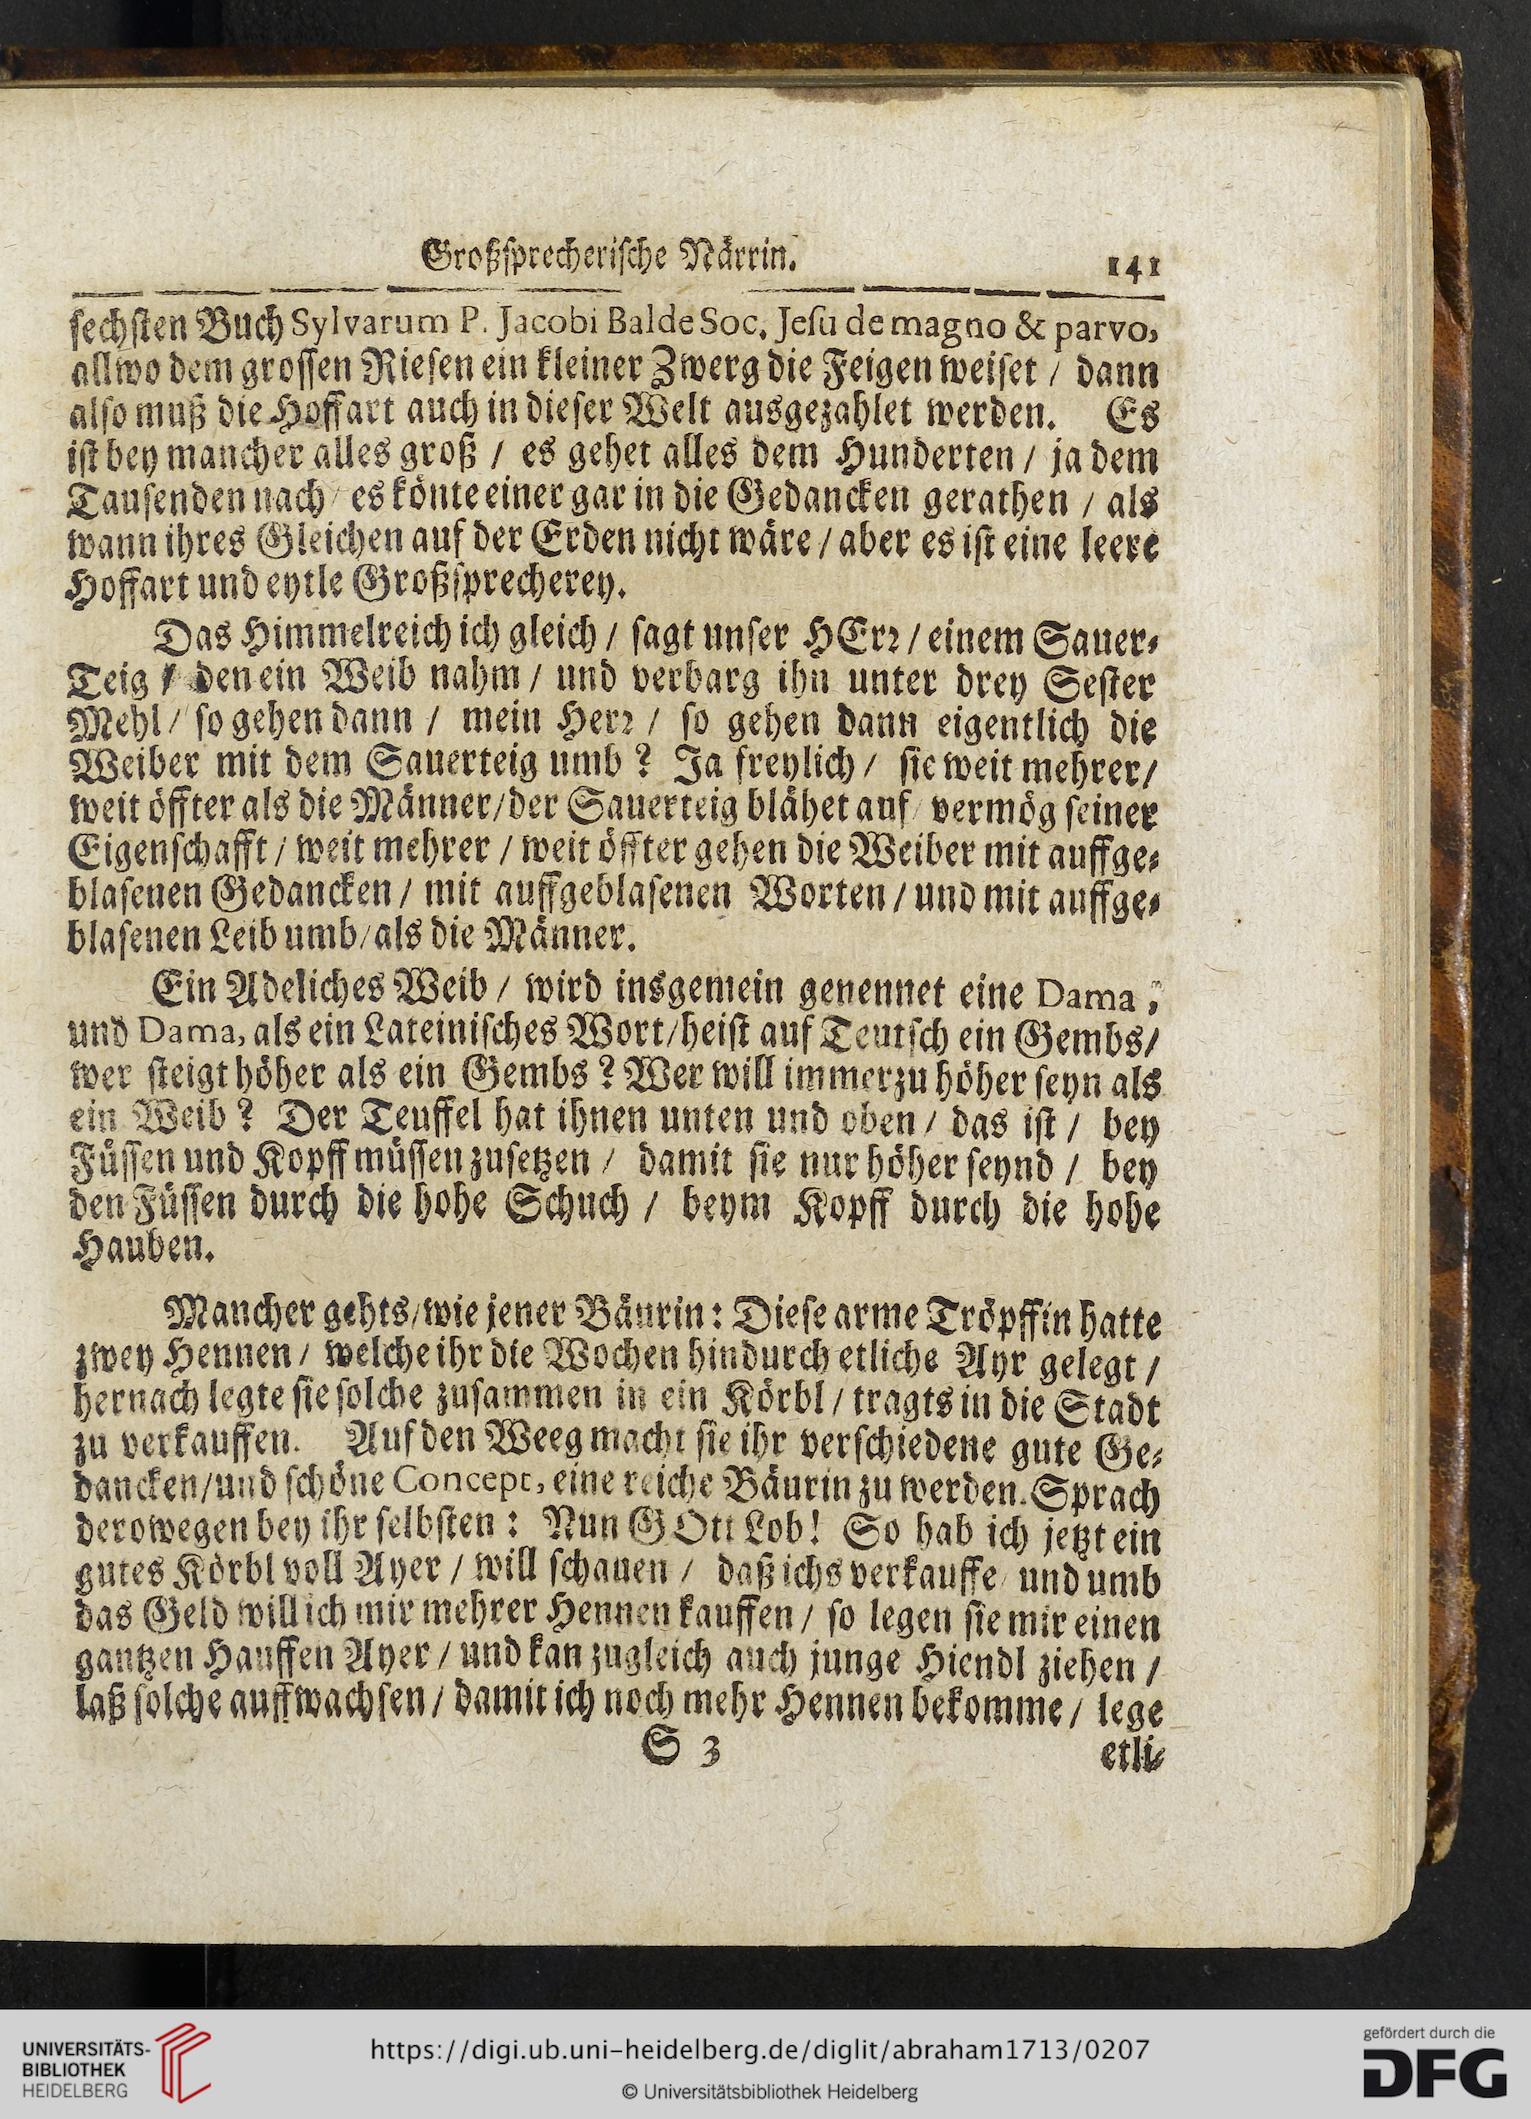 Großsprecherische Närrin. 141
sechsten Buch Sylvarum P. Jacobi Balde Soc. Jesu de magno & parvo,
allwo dem grossen Riesen ein kleiner Zwerg die Feigen weiset / dann
also muß die Hoffart auch in dieser Welt ausgezahlet werden. Es
ist bey mancher alles groß / es gehet alles dem Hunderten / ja dem
Tausenden nach / es könte einer gar in die Gedancken gerathen / als
wann ihres Gleichen auf der Erden nicht wäre / aber es ist eine leere
Hoffart und eytle Großsprecherey.
Das Himmelreich ich gleich / sagt unser HErr / einem Sauer-
Teig / den ein Weib nahm / und verbarg ihn unter drey Sester
Mehl / so gehen dann / mein Herr / so gehen dann eigentlich die
Weiber mit dem Sauerteig umb? Ja freylich / sie weit mehrer /
weit öffter als die Männer / der Sauerteig blähet auf / vermög seiner
Eigenschafft / weit mehrer / weit öffter gehen die Weiber mit auffge-
blasenen Gedancken / mit auffgeblasenen Worten / und mit auffge-
blasenen Leib umb / als die Männer.
Ein Adeliches Weib / wird insgemein genennet eine Dama;
und Dama, als ein Lateinisches Wort / heist auf Teutsch ein Gembs /
wer steigt höher als ein Gembs? Wer will immerzu höher seyn als
ein Weib? Der Teuffel hat ihnen unten und oben / das ist / bey
Füssen und Kopff müssen zusetzen / damit sie nur höher seynd / bey
den Füssen durch die hohe Schuch / beym Kopff durch die hohe
Hauben.
Mancher gehts / wie jener Bäurin: Diese arme Tröpffin hatte
zwey Hennen / welche ihr die Wochen hindurch etliche Ayr gelegt /
hernach legte sie solche zusammen in ein Körbl / tragts in die Stadt
zu verkauffen. Auf den Weeg macht sie ihr verschiedene gute Ge-
dancken / und schöne Concept, eine reiche Bäurin zu werden. Sprach
derowegen bey ihr selbsten: Nun GOtt Lob! So hab ich jetzt ein
gutes Körbl voll Ayer / will schauen / daß ichs verkauffe / und umb
das Geld will ich mir mehrer Hennen kauffen / so legen sie mir einen
gantzen Hauffen Ayer / und kan zugleich auch junge Hiendl ziehen /
laß solche auffwachsen / damit ich noch mehr Hennen bekomme / lege
S 3 etli-
UNIVERSITÄTS-
BIBLIOTHEK
HEIDELBERG
https://digi.ub.uni-heidelberg.de/diglit/abraham1713/0207
© Universitätsbibliothek Heidelberg
gefördert durch die
DFG